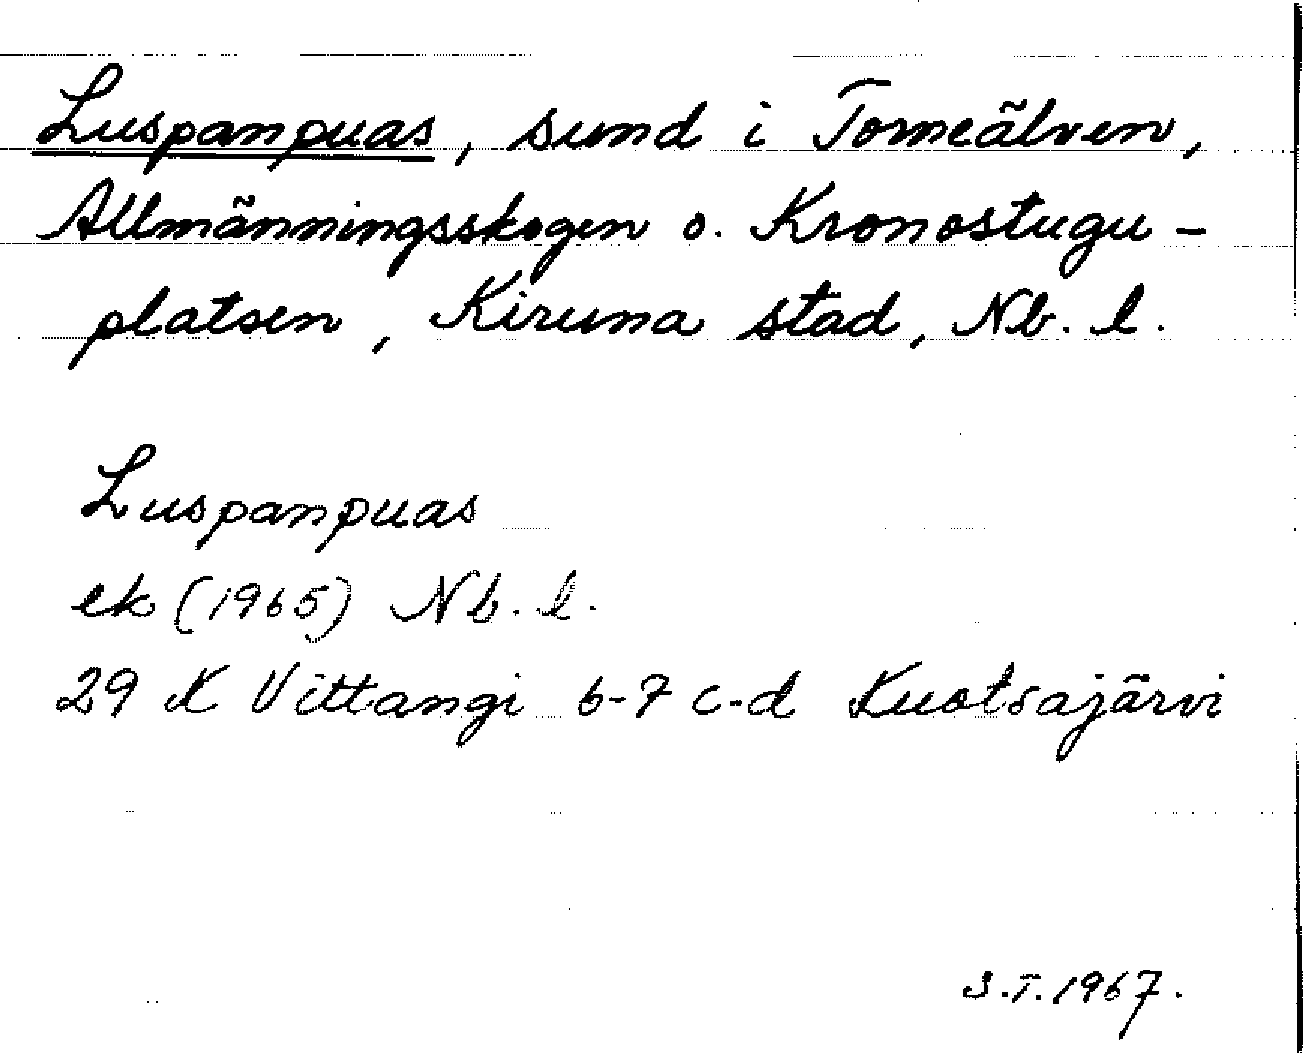 Luspanpuas, sund i Torneälven,
Allmänningsskogen o. Kronostugu-
platsen, Kiruna stad, Nb. l.
Luspanpuas
ek (1965) Nb. l.
29 K Vittangi 6-7 c-d Kuotsajärvi
S.T. 1967.